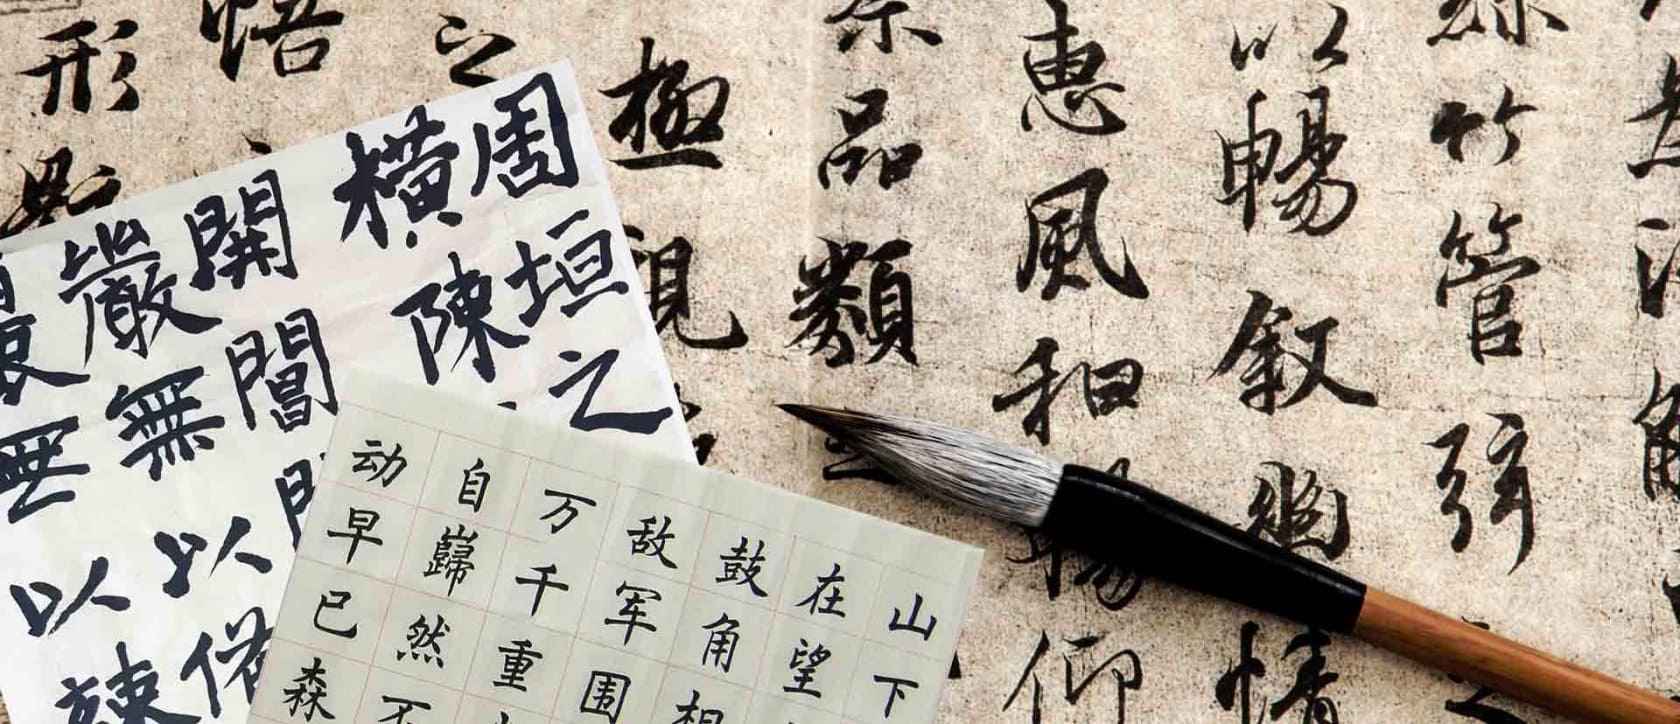 絲竹管弦之
以暢叙幽情
惠風和暢仰
品類之
極視
之
悟
形
周垣之
横陳
開閶
嚴無以
無以
山下
在望
鼓角相
敌军围
万千重
自巋然不
动早已森